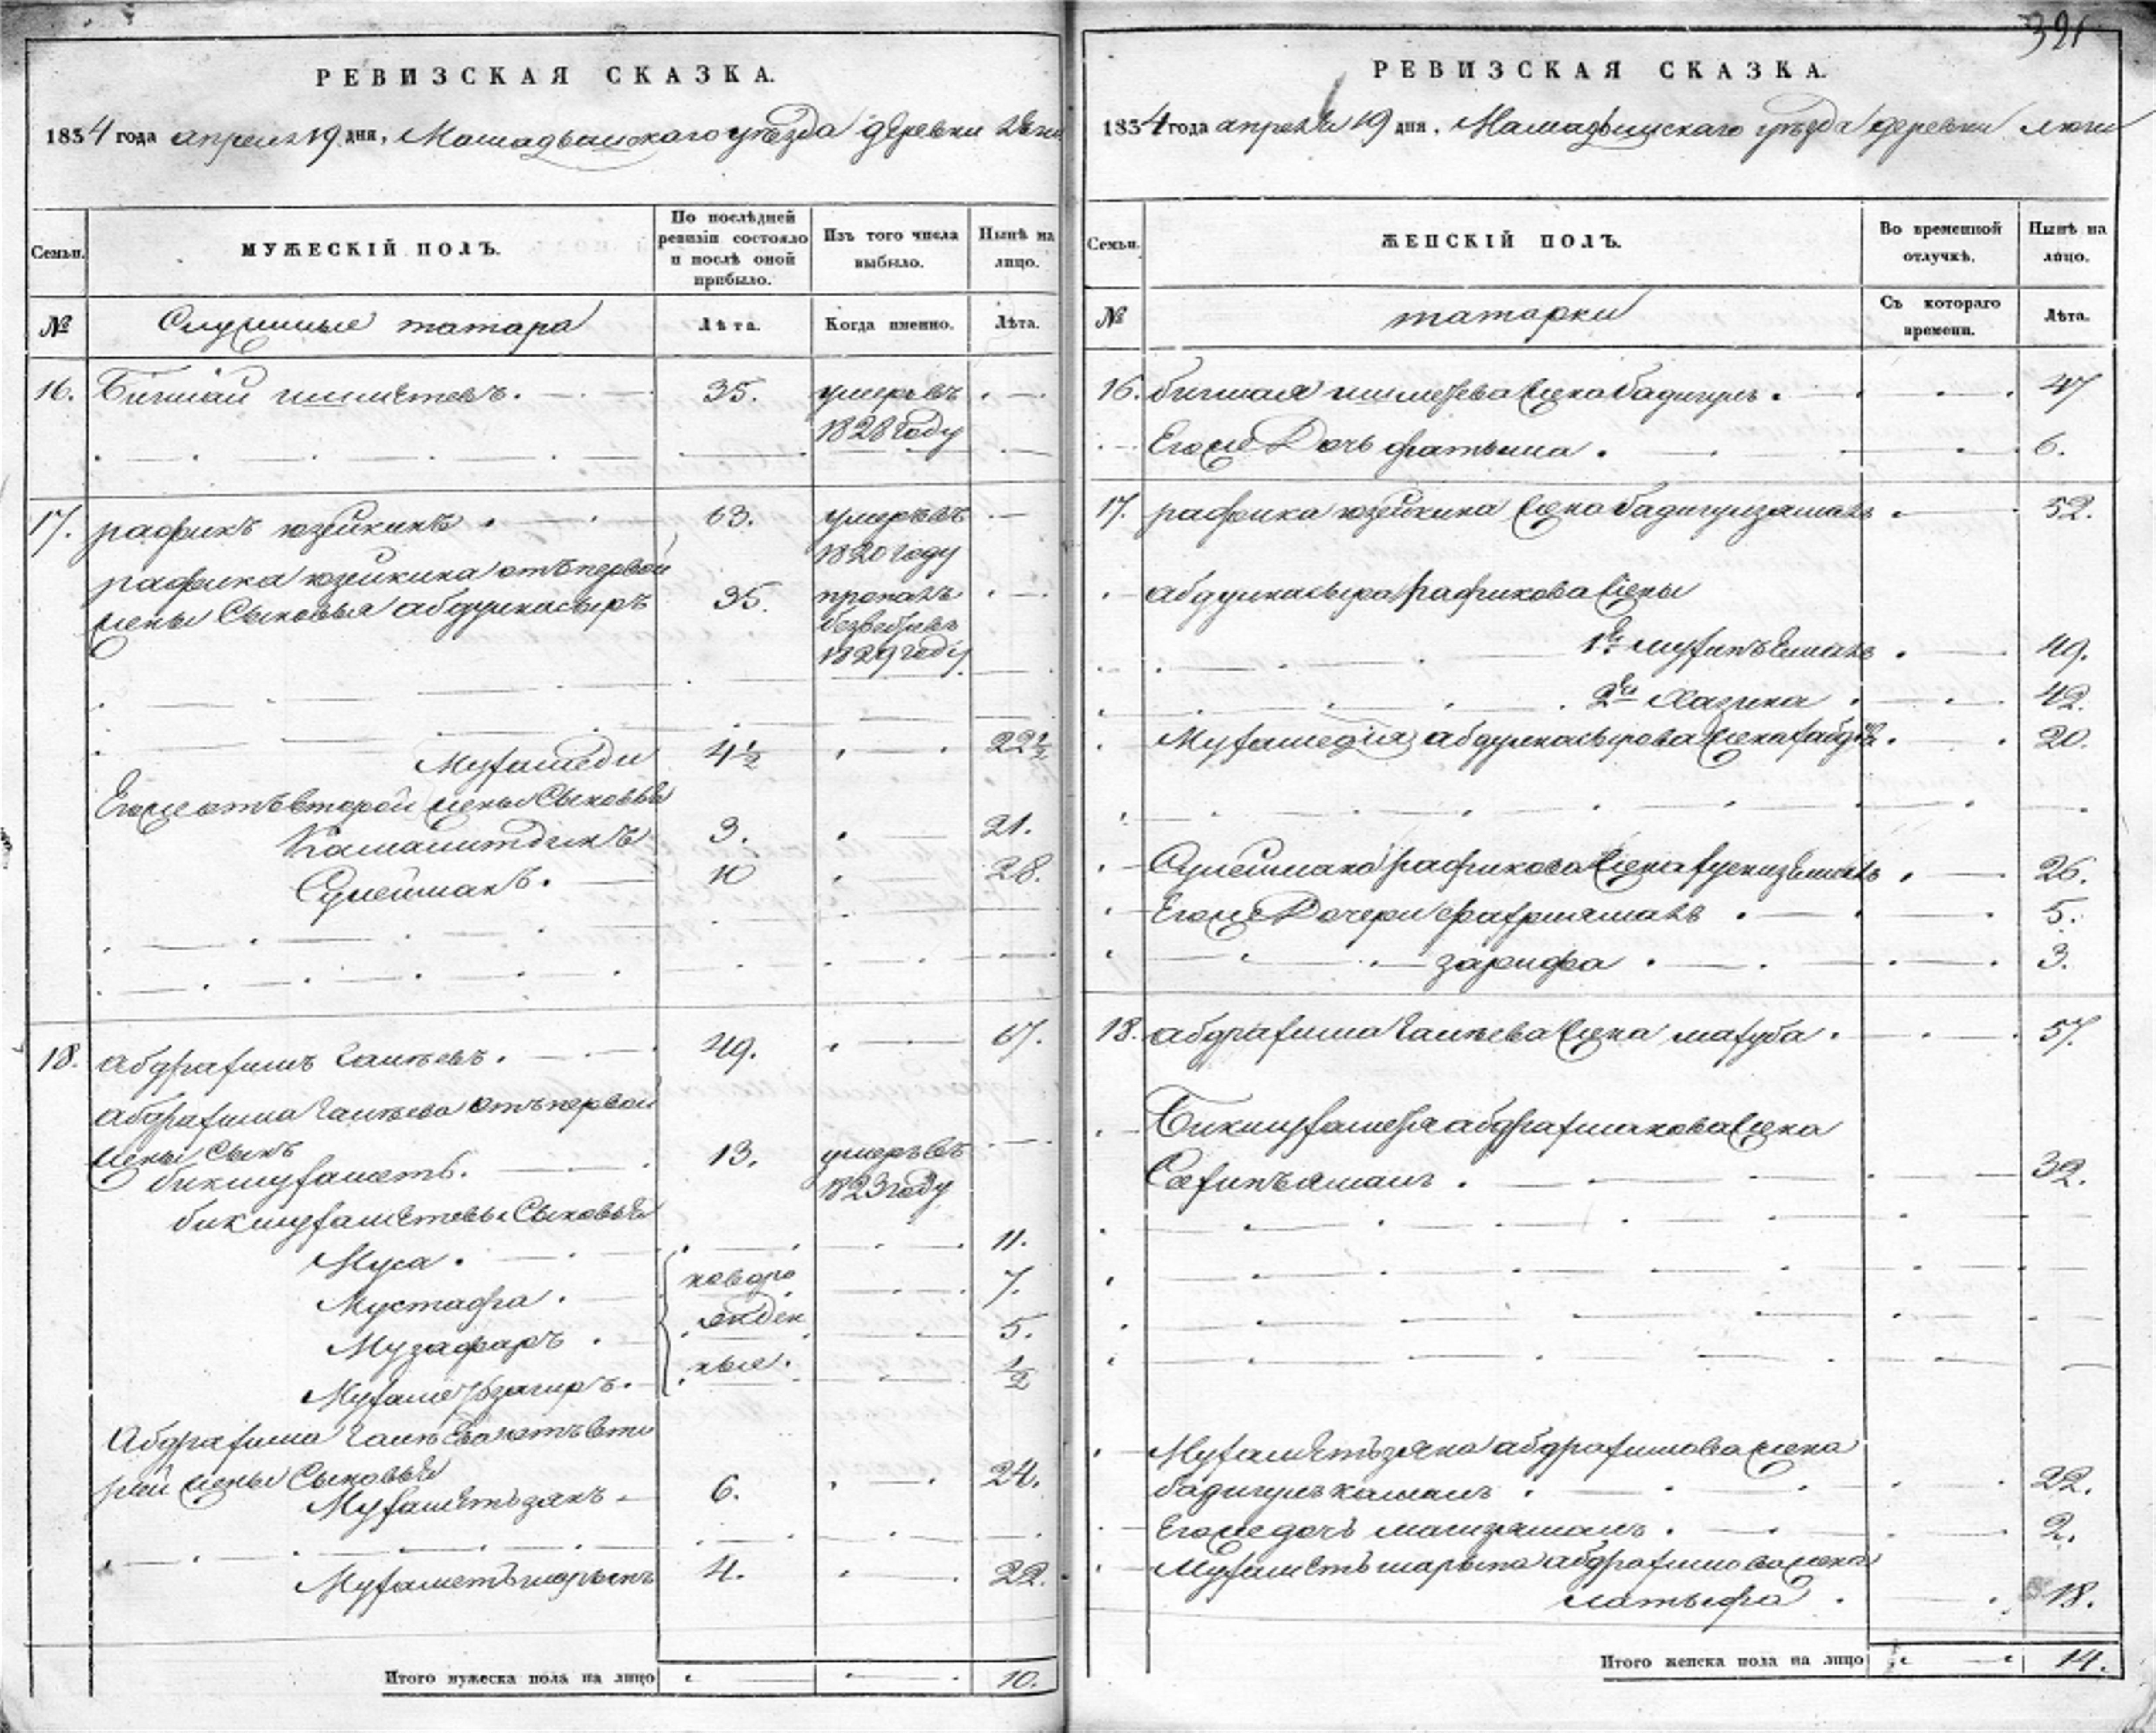 РЕВИЗСКАЯ СКАЗКА.
1834 года апреля 19 дня, Мамадышскаго уѣзда деревни
Семьи.
МУЖЕСКІЙ ПОЛЪ.
По послѣдней ревизіи состояло и послѣ оной прибыло.
Изъ того числа выбыло.
Нынѣ на лицо.
№
Служилые татара
Лѣта.
Когда именно.
Лѣта.
16. Бикмай ишметевъ. 35. умеръ въ
1828 году
17. рафикъ юзейкинъ 63. умеръ въ
1820 году
рафика юзейкина отъ первой
жены Сыновья абдулнасыръ 35. пропалъ
безвести въ
1829 году
Мухамеди 4½ 22½
Его же отъ второй жены Сыновья
Камалитдинъ 3. 21.
Сулейманъ. 10 28.
18. абдрахимъ 49. 67.
абдрахима отъ первой
жены Сынъ
бикмухаметь. 13. умеръ въ
1823 году
бикмухаметевы Сыновья
Муса. 11.
Мустафа. новоро 7.
Музафаръ. жден 5.
Мухаметзагиръ. ные. ½
Абдрахима отъ вто
рой жены Сыновья
Мухаметьзянъ 6. 24.
Мухаметьшарыпъ 4. 22.
Итого мужеска пола на лицо 10.
321
РЕВИЗСКАЯ СКАЗКА.
1834 года апреля 19 дня, Мамадышскаго уѣзда деревни
Семьи.
ЖЕНСКІЙ ПОЛЪ.
Во временной отлучкѣ.
Нынѣ на лицо.
№
татарки
Съ котораго времени.
Лѣта.
16. бикмая ишметева жена бадигулъ. 47
Его же Дочь фатыма. 6.
17. рафика юзейкина жена 52.
абдулнасыра рафикова жены
1я 49.
2я Хазина 42.
Мухамедия абдулнасырова жена 20.
Сулеймана рафикова жена 26.
Его же Дочери 5.
зарифа. 3.
18. абдрахима жена махуба. 57.
Бикмухаметя абдрахманова жена
32.
Мухаметьзяна абдрахимова жена
бадигулькамалъ 22.
Его же дочь 2.
Мухаметьшарыпа абдрахимова жена
латыфа 18.
Итого женска пола на лицо 14.